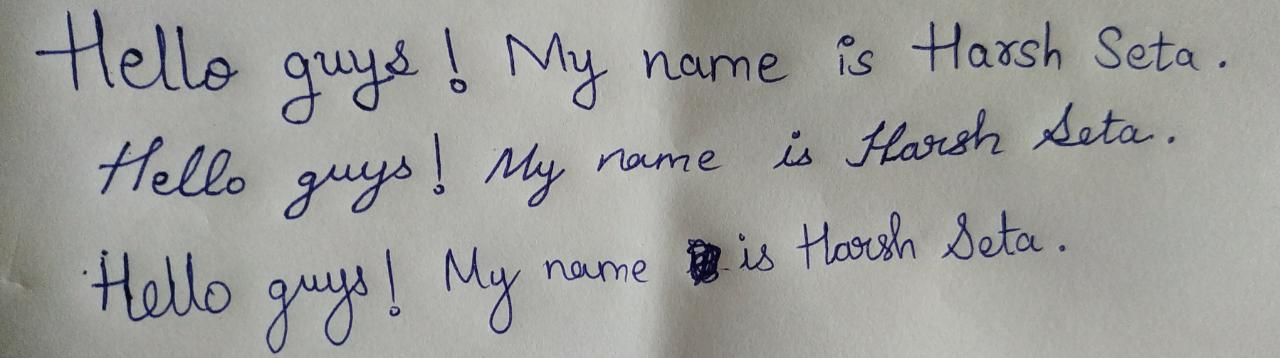 Hello guys! My name is Harsh Seta.
Hello guys! My name is Harsh Seta.
Hello guys! My name is Harsh Seta.